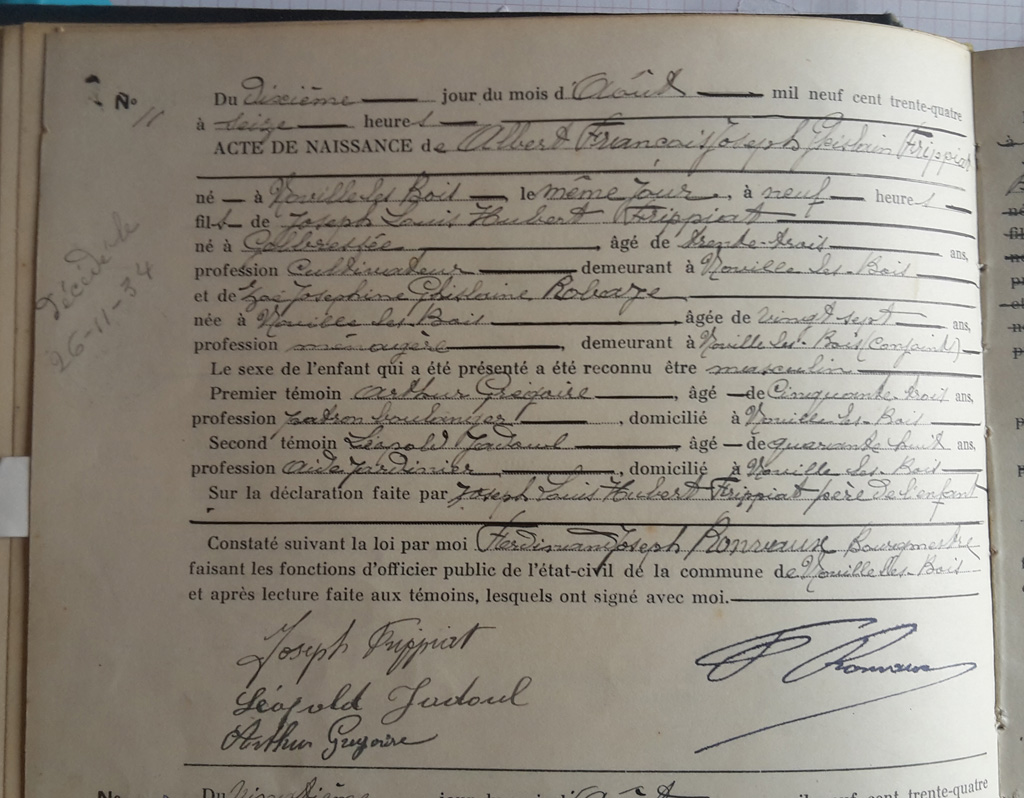 No 11
Du dixième jour du mois d'Août mil neuf cent trente-quatre
à seize heures
ACTE DE NAISSANCE de Albert François Joseph Ghislain Frippiat
né à Noville les Bois, le même jour, à neuf heures
fils de Joseph Louis Hubert Frippiat
né à Gelbressée, âgé de trente-trois ans,
profession Cultivateur demeurant à Noville-les-Bois
et de Zoé Josephine Ghislaine Robaye
née à Noville les Bois, âgée de vingt sept ans,
profession menagère, demeurant à Noville les-Bois (conjoints)
Le sexe de l'enfant qui a été présenté a été reconnu être masculin
Premier témoin Arthur Grégoire, âgé de Cinquante trois ans,
profession patron boulanger, domicilié à Noville-les-Bois
Second témoin Léopold Jadoul, âgé de quarante huit ans,
profession Aide jardinier, domicilié à Noville les Bois
Sur la déclaration faite par Joseph Louis Hubert Frippiat père de l'enfant
Constaté suivant la loi par moi Ferdinand Joseph Ronvaux Bourgmestre
faisant les fonctions d'officier public de l'état-civil de la commune de Noville les-Bois
et après lecture faite aux témoins, lesquels ont signé avec moi.
Décédé le
26-11-34
Joseph Frippiat
F Ronvaux
Léopold Jadoul
Arthur Gregoire
jour du mois d'Août mil neuf cent trente-quatre